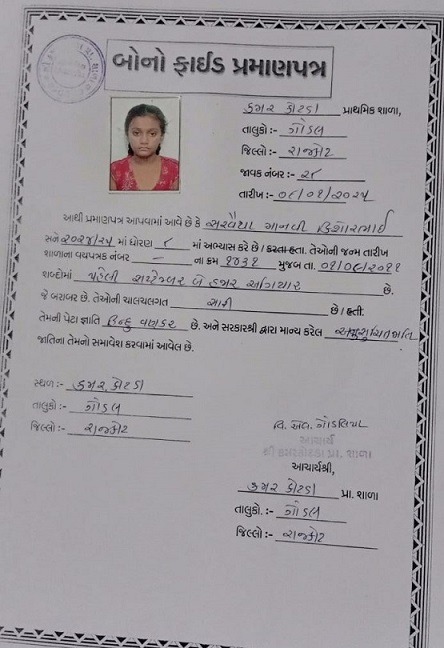 બોનો ફાઈડ પ્રમાણપત્ર
કમર કોટડા પ્રાથમિક શાળા,
તાલુકો :- ગોંડલ
જિલ્લો :- રાજકોટ
જાવક નંબર :- ૨૮
તારીખ :- ૦૮/૦૧/૨૦૨૫
આથી પ્રમાણપત્ર આપવામાં આવે છે કે સરવૈયા જાનવી કિશોરભાઈ
સને ૨૦૨૪/૨૫ માં ધોરણ ૮ માં અભ્યાસ કરે છે / કરતા હતા. તેઓની જન્મ તારીખ
શાળાના વયપત્રક નંબર — ના ક્રમ ૧૭૩૧ મુજબ તા. ૦૧/૦૯/૨૦૧૧
શબ્દોમાં પહેલી સપ્ટેમ્બર બે હજાર અગિયાર છે.
જે બરાબર છે. તેઓની ચાલચલગત સારી છે / હતી.
તેમની પેટા જ્ઞાતિ હિન્દુ વણકર છે. અને સરકારશ્રી દ્વારા માન્ય કરેલ અનુસુચિત જાતિ
જાતિના તેમનો સમાવેશ કરવામાં આવેલ છે.
સ્થળ :- કમર કોટડા
તાલુકો :- ગોંડલ
જિલ્લો :- રાજકોટ
વિ. એલ. ગોંડલિયા
આચાર્ય
શ્રી કમરકોટડા પ્રા. શાળા
આચાર્યશ્રી,
કમર કોટડા પ્રા. શાળા
તાલુકો. :- ગોંડલ
જિલ્લો :- રાજકોટ